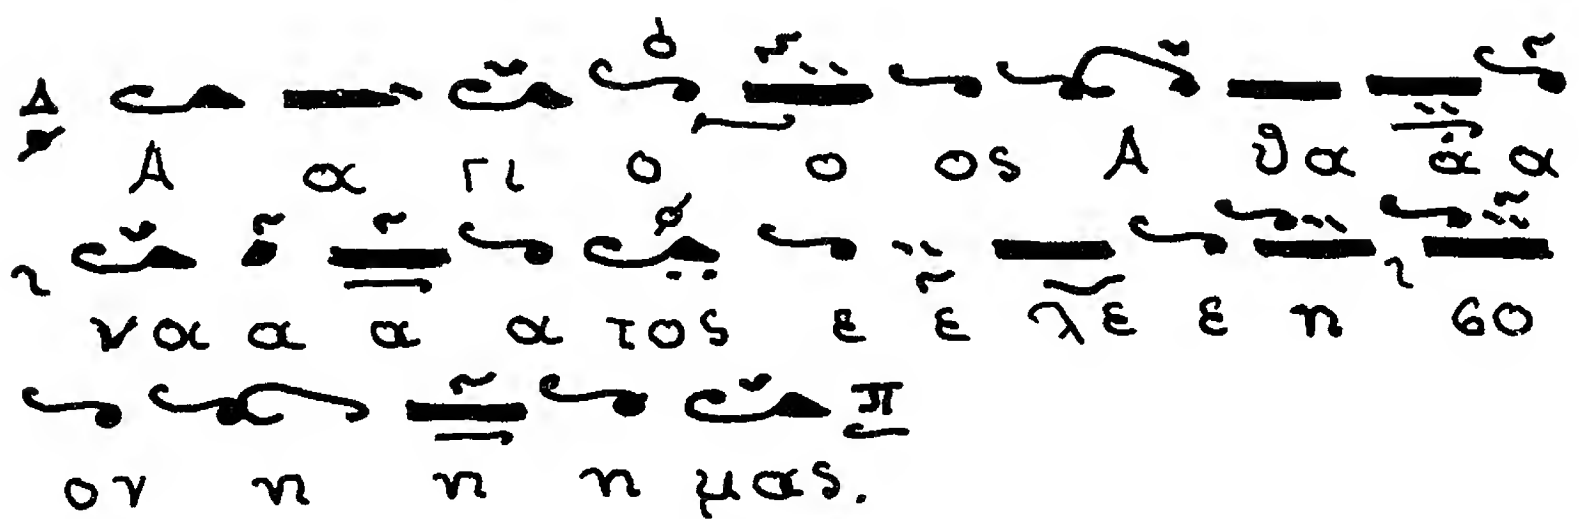 Α α γι ο ο ος Α θα ά α
να α α α τος ε ε λε ε η σο
ον η η η μας.